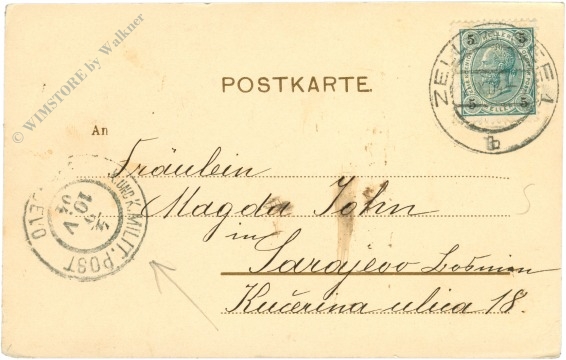 © WIMSTORE by Walkner
5 5
5 5
ZELL SEE 1
b
POSTKARTE.
An
Fräulein
Magda John
in
Sarajevo Bosnien
Kučerina ulica 18.
UND K. MILIT. POST
10 V
04